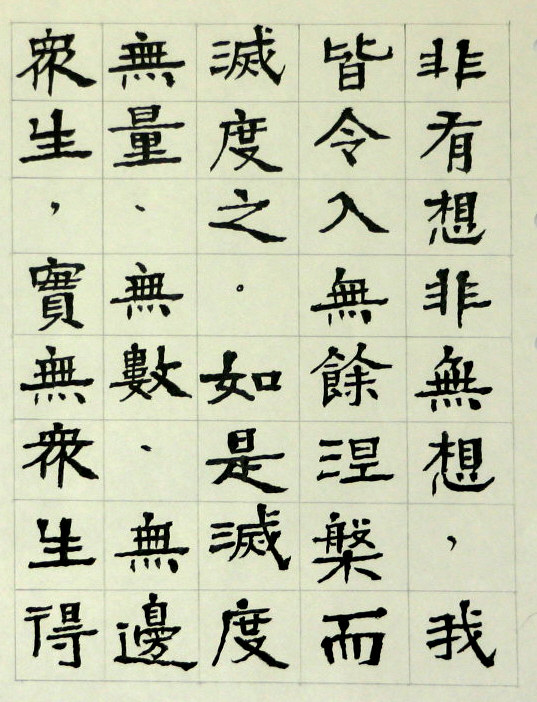 非有想非無想，我
皆令入無餘涅槃而
滅度之。如是滅度
無量、無數、無邊
眾生，實無眾生得